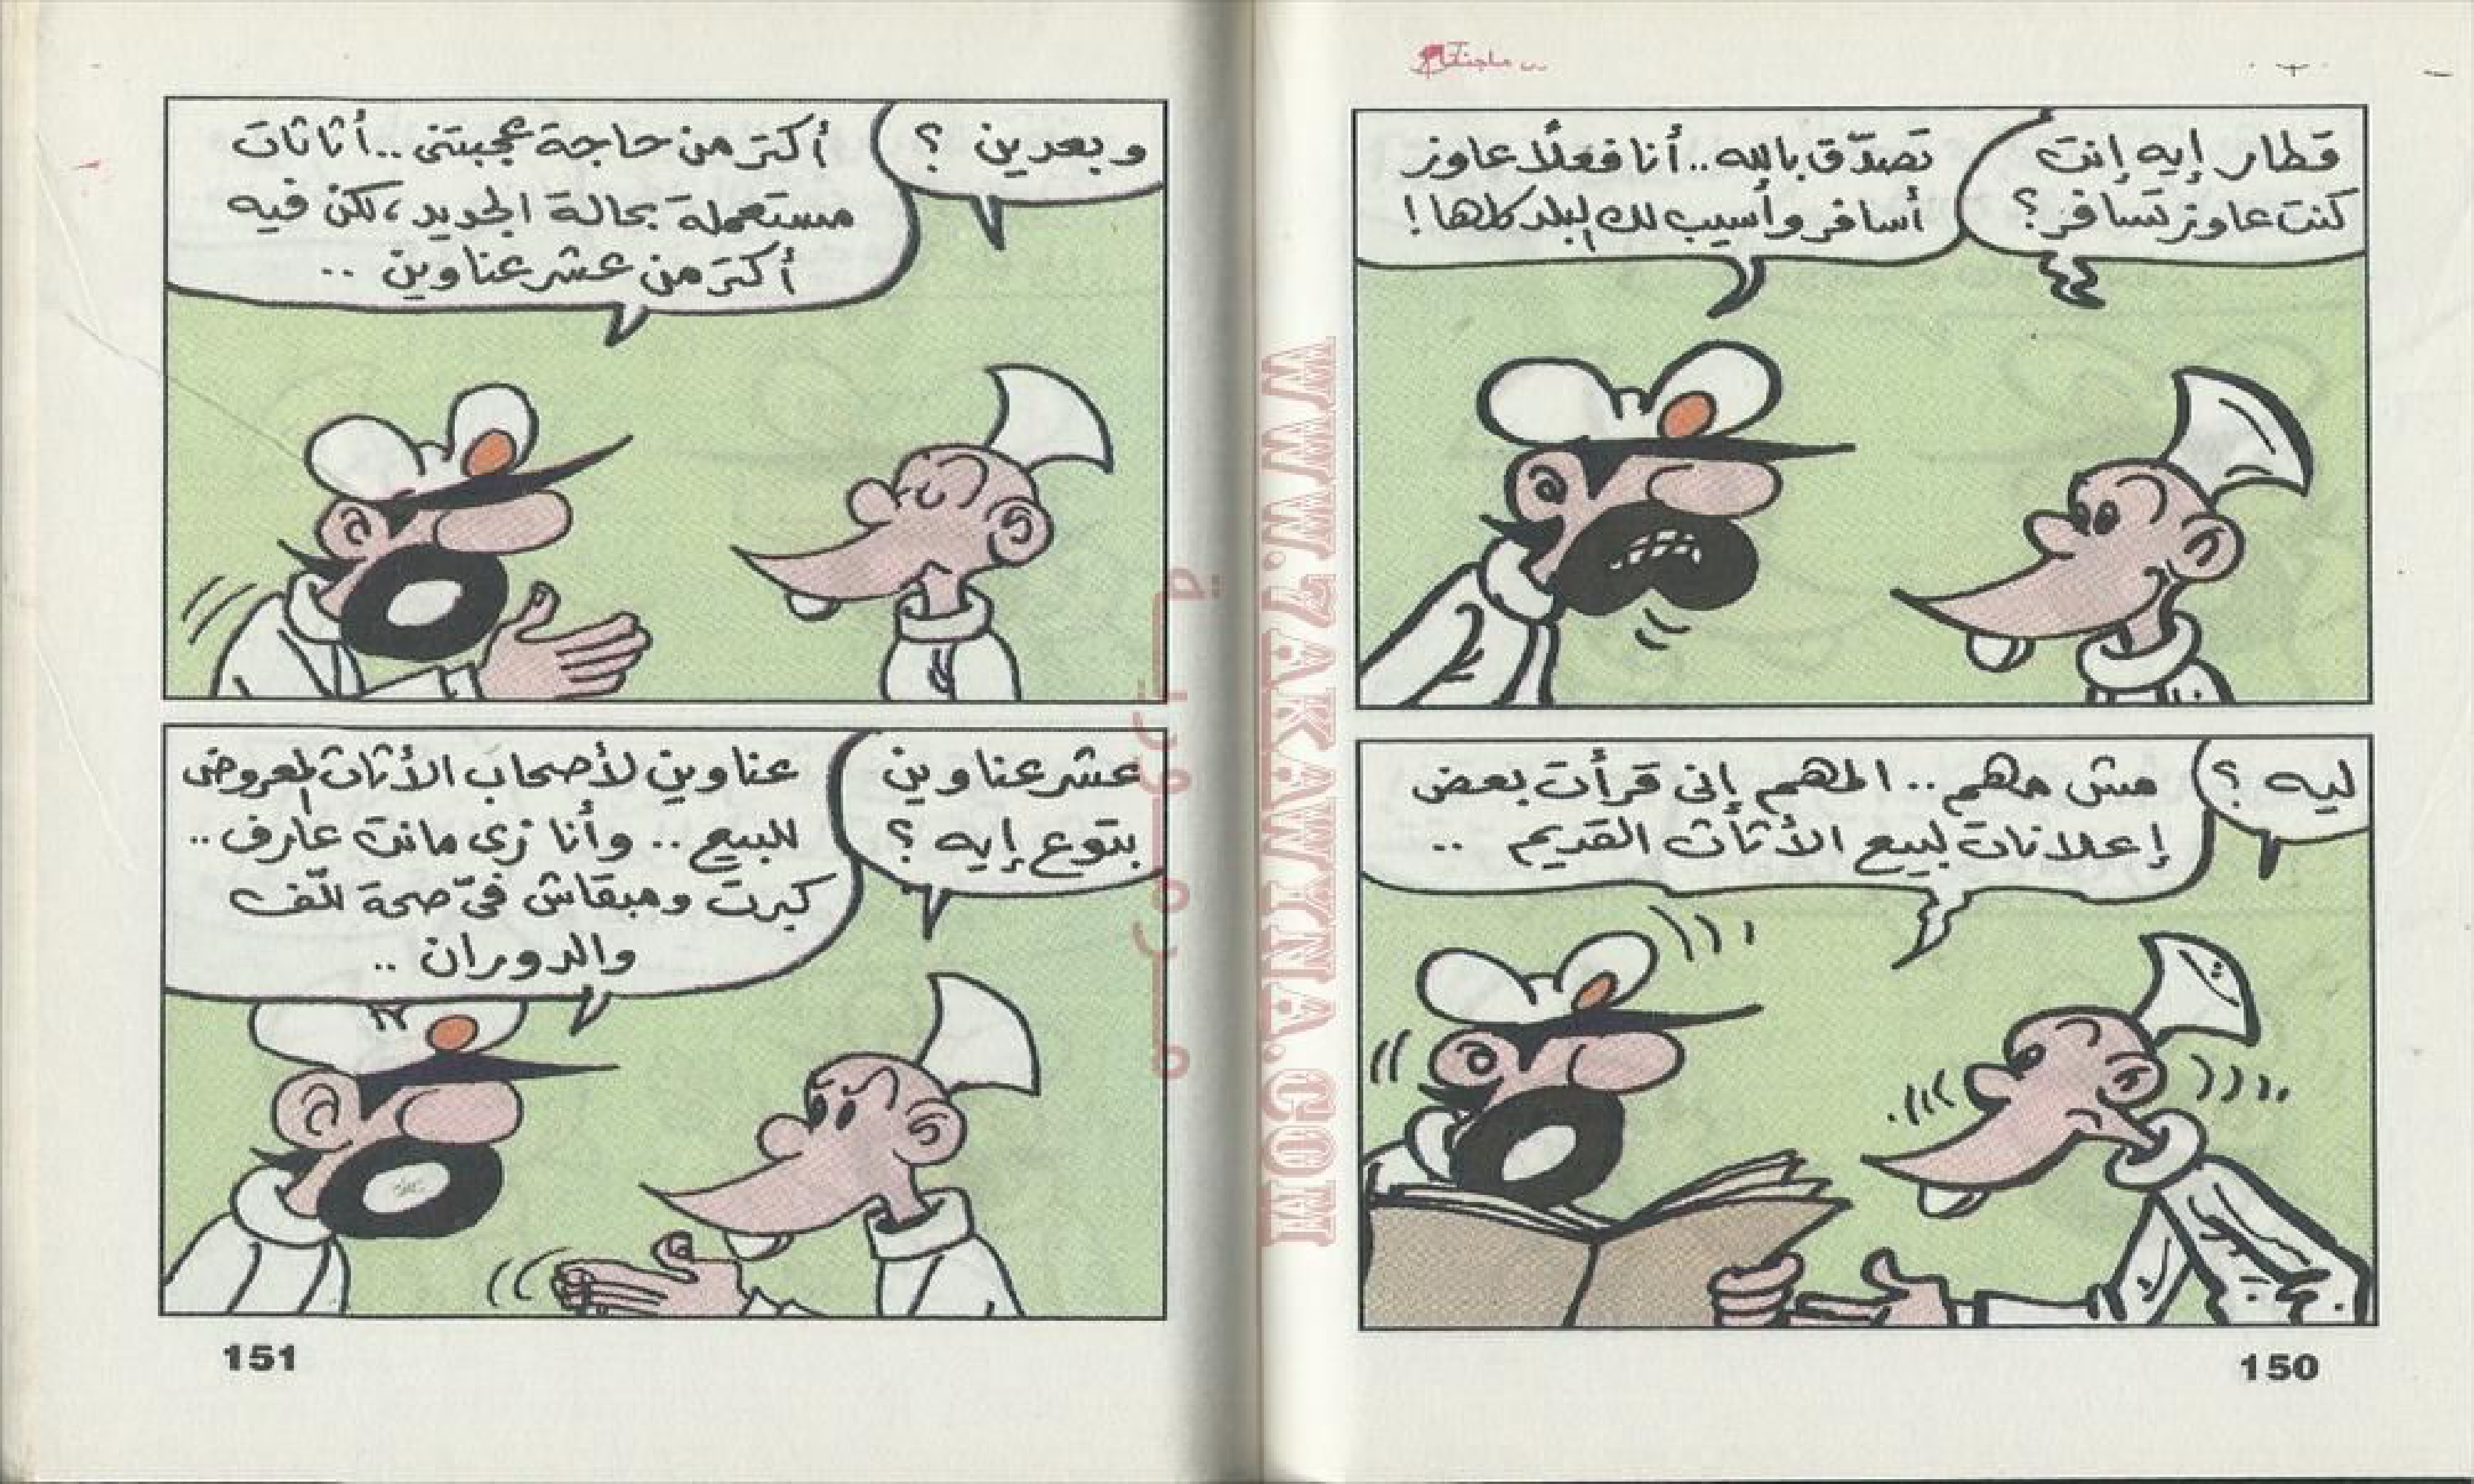 قطار إيه إنت
كنت عاوز تسافر؟
تصدّق بالله.. أنا فعلًا عاوز
أسافر وأسيب لك البلد كلها!
ليه؟
مش مهم.. المهم إنى قرأت بعض
إعلانات لبيع الأثاث القديم ..
150
وبعدين ؟
أكتر من حاجة عجبتنى.. أثاثات
مستعملة بحالة الجديد، لكن فيه
أكتر من عشر عناوين ..
عشر عناوين
بتوع إيه ؟
عناوين لأصحاب الأثاث المعروض
للبيع .. وأنا زى مانت عارف..
كبرت ومبقاش فىّ صحة للّف
والدوران ..
151
WWW.7AKAWINA.COM